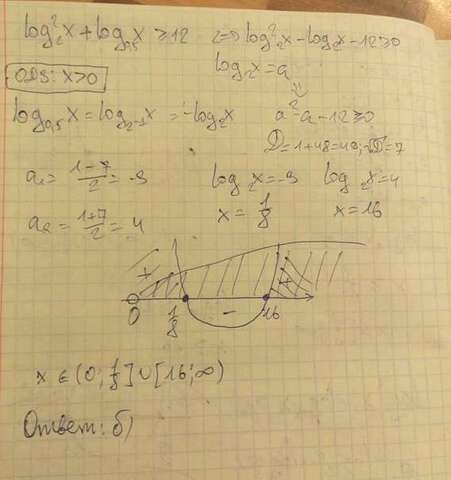 log₂²x + log₀,₅x ≥ 12 <=> log₂²x - log₂x - 12 ≥ 0
ODS: x>0 log₂x = a
log₀,₅x = log₂₋₁x = -log₂x a² - a - 12 ≥ 0
D = 1+48 = 49; √D = 7
a₁ = (1-7)/2 = -3 log₂x = -3 log₂x = 4
a₂ = (1+7)/2 = 4 x = 1/8 x = 16
+ - +
0 1/8 16
x ∈ (0; 1/8] ∪ [16; ∞)
Ответ: б)